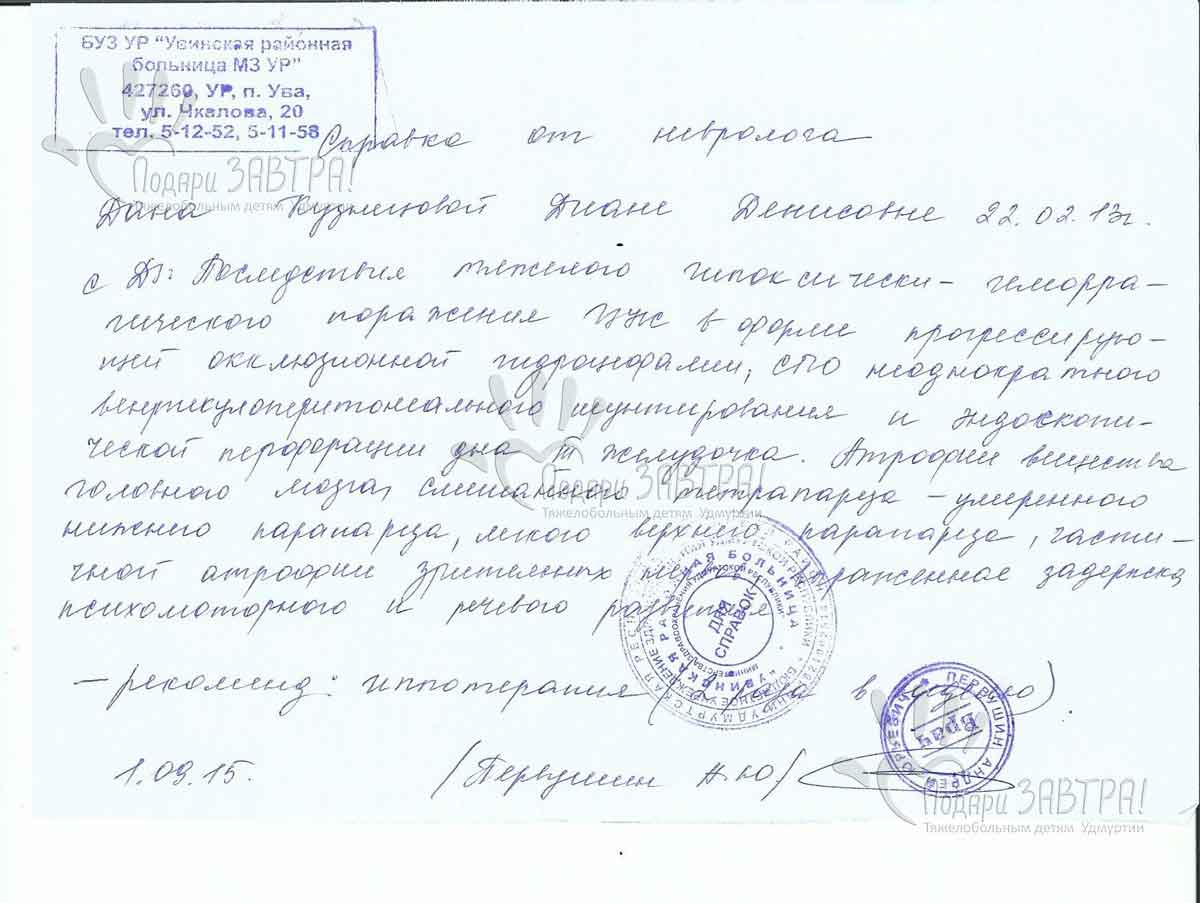 БУЗ УР "Увинская районная
больница МЗ УР"
427260, УР, п. Ува,
ул. Чкалова, 20
тел. 5-12-52, 5-11-58
Справка от невролога
Подари ЗАВТРА!
Тяжелобольным детям Удмуртии
Дана Кузнецовой Диане Денисовне 22.02.13г.
с Дз: Последствия тяжелого гипоксически-геморра-
гического поражения ЦНС в форме прогрессирую-
щей окклюзионной гидроцефалии, СПО неоднократного
вентрикулоперитонеального шунтирования и эндоскопи-
ческой перфорации дна III желудочка. Атрофии вещества
Подари ЗАВТРА!
Тяжелобольным детям Удмуртии
головного мозга, смешанного тетрапареза - умеренного
нижнего парапареза, легкого верхнего парапареза, части-
чной атрофии зрительных выраженное задержка
психомоторного и речевого развития
УВИНСКАЯ РАЙОННАЯ БОЛЬНИЦА
ДЛЯ
СПРАВОК
- рекоменд: иппотерапия ( раза в неделю)
1.09.15. /Первушин А.Ю./
ПЕРВУШИН АНДРЕЙ ЮРЬЕВИЧ
Врач
Подари ЗАВТРА!
Тяжелобольным детям Удмуртии